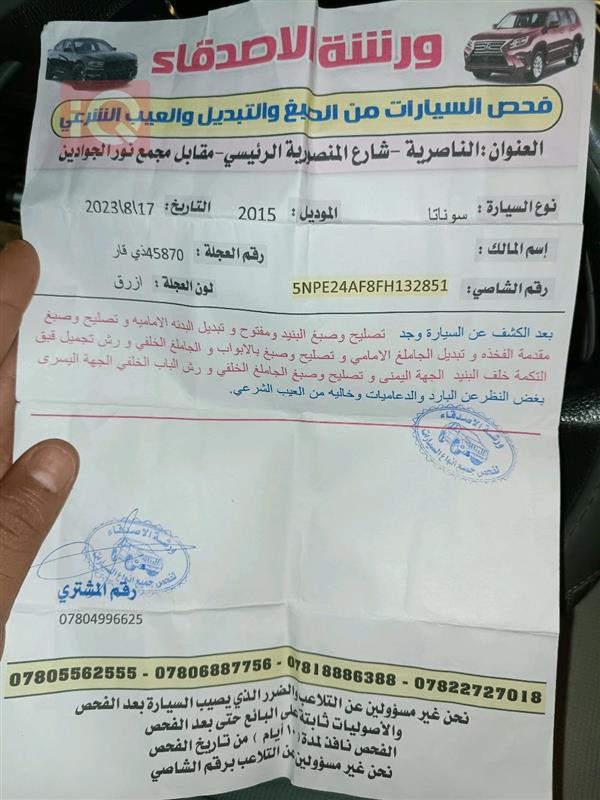 ورشة الاصدقاء
فحص السيارات من الصبغ والتبديل والعيب الشرعي
العنوان : الناصرية - شارع المنصورية الرئيسي - مقابل مجمع نور الجوادين
نوع السيارة : سوناتا الموديل : 2015 التاريخ : 2023\8\17
إسم المالك : رقم العجلة : 45870ذي قار
رقم الشاصي : 5NPE24AF8FH132851 لون العجلة : ازرق
بعد الكشف عن السيارة وجد تصليح وصبغ البنيد ومفتوح و تبديل البدنه الاماميه و تصليح وصبغ
مقدمة الفخذه و تبديل الجاملغ الامامي و تصليح وصبغ بالابواب و الجاملغ الخلفي و رش تجميل فيق
التكمة خلف البنيد الجهة اليمنى و تصليح وصبغ الجاملغ الخلفي و رش الباب الخلفي الجهة اليسرى
بغض النظر عن البارد والدعاميات وخاليه من العيب الشرعي.
ورشة الاصدقاء
لفحص جميع انواع السيارات
ورشة الاصدقاء
لفحص جميع انواع السيارات
رقم المشتري
07804996625
07805562555 - 07806887756 - 07818886388 - 07822727018
نحن غير مسؤولين عن التلاعب والضرر الذي يصيب السيارة بعد الفحص
والأصوليات ثابتة على البائع حتى بعد الفحص
الفحص نافذ لمدة (١٠ أيام) من تاريخ الفحص
نحن غير مسؤولين عن التلاعب برقم الشاصي